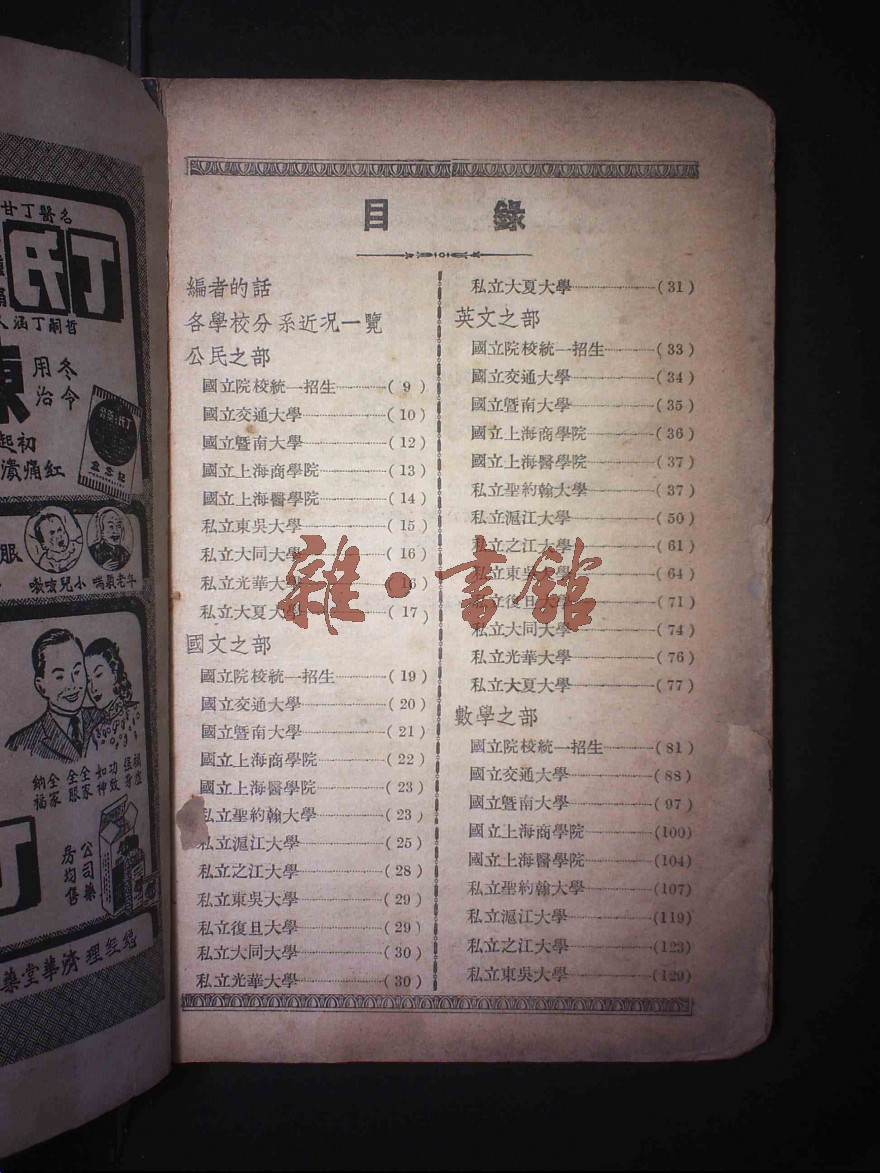 目錄
編者的話
各學校分系近況一覽
公民之部
國立院校統一招生………(9)
國立交通大學………(10)
國立暨南大學………(12)
國立上海商學院………(13)
國立上海醫學院………(14)
私立東吳大學………(15)
私立大同大學………(16)
私立光華大學………(16)
私立大夏大學………(17)
國文之部
國立院校統一招生………(19)
國立交通大學………(20)
國立暨南大學………(21)
國立上海商學院………(22)
國立上海醫學院………(23)
私立聖約翰大學………(23)
私立滬江大學………(25)
私立之江大學………(28)
私立東吳大學………(29)
私立復旦大學………(29)
私立大同大學………(30)
私立光華大學………(30)
私立大夏大學………(31)
英文之部
國立院校統一招生………(33)
國立交通大學………(34)
國立暨南大學………(35)
國立上海商學院………(36)
國立上海醫學院………(37)
私立聖約翰大學………(37)
私立滬江大學………(50)
私立之江大學………(61)
私立東吳大學………(64)
私立復旦大學………(71)
私立大同大學………(74)
私立光華大學………(76)
私立大夏大學………(77)
數學之部
國立院校統一招生………(81)
國立交通大學………(88)
國立暨南大學………(97)
國立上海商學院………(100)
國立上海醫學院………(104)
私立聖約翰大學………(107)
私立滬江大學………(119)
私立之江大學………(123)
私立東吳大學………(129)
雜·書館
名醫丁甘
丁氏
哲嗣丁涵人
冬令
用治
初起
紅痛潰
小兒咳嗽
年老氣喘
服
功效如神
全家全服
全家納福
公司藥房均售
總經理濟華堂藥